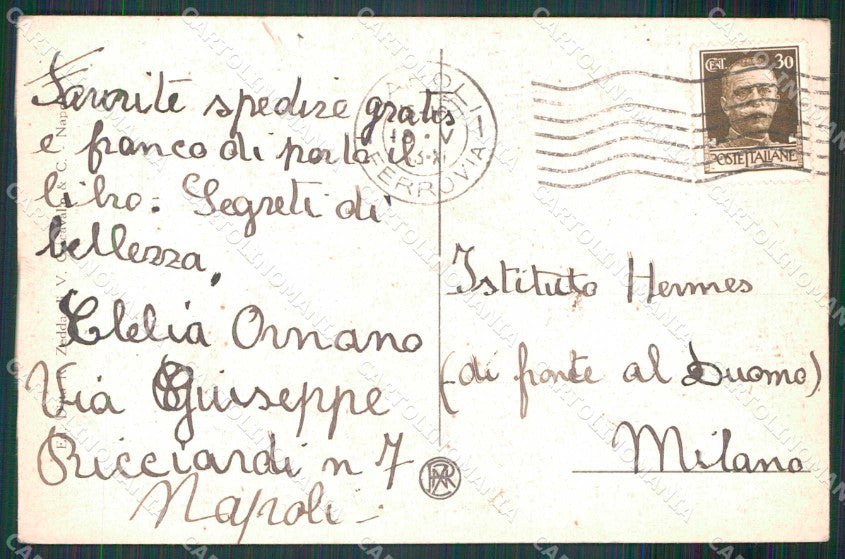 Favorite spedire gratis
e franco di porto il
libro: Segreti di
bellezza,
Clelia Ornano
Via Giuseppe
Ricciardi n 7
Napoli -
NAPOLI
FERROVIA
CENT. 30
POSTE ITALIANE
Istituto Hermes
(di fronte al Duomo)
Milano
CARTOLINOMANIA